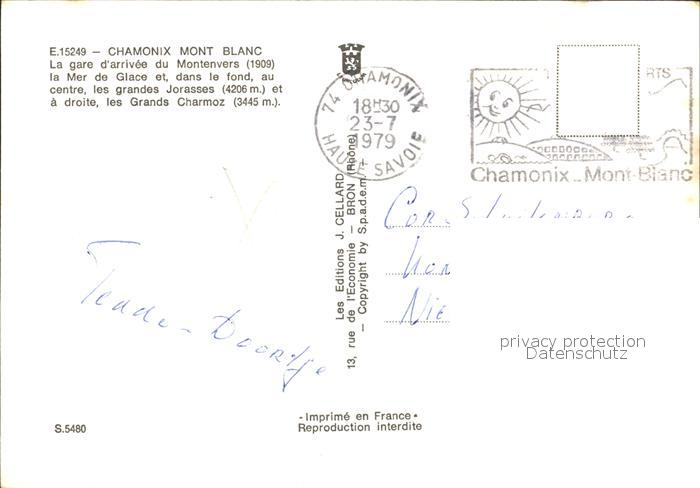 E.15249 – CHAMONIX MONT BLANC
La gare d'arrivée du Montenvers (1909)
la Mer de Glace et, dans le fond, au
centre, les grandes Jorasses (4206 m.) et
à droite, les Grands Charmoz (3445 m.).
74 CHAMONIX
18H30
23-7
1979
HAUTE SAVOIE
RTS
Chamonix_Mont-Blanc
Les Editions J. CELLARD
13, rue de l'Economie – BRON (Rhône)
– Copyright by S.p.a.d.e.m. +
Nie
privacy protection
Datenschutz
-Imprimé en France•
Reproduction interdite
S.5480